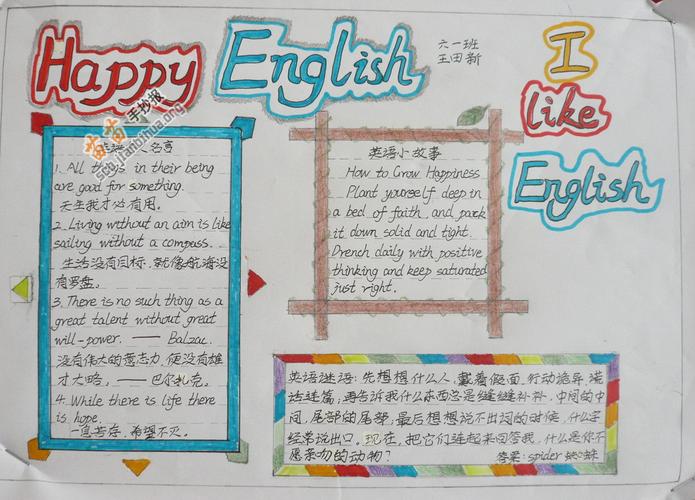 Happy English
六一班
王田新
I
like
English
苗苗手抄报
scb.jianbihua.org
1. All things in their being
are good for something.
天生我才必有用。
2. Living without an aim is like
sailing without a compass.
生活没有目标,就像航海没
有罗盘。
3. There is no such thing as a
great talent without great
will-power. —— Balzac.
没有伟大的意志力,便没有雄
才大略。——巴尔扎克。
4. While there is life there
is hope.
一息若存,希望不灭。
英语小故事
How to Grow Happiness
Plant yourself deep in
a bed of faith, and pack
it down solid and tight.
Drench daily with positive
thinking and keep saturated
just right.
英语谜语:先想想什么人,戴着假面,行动诡异,谎
话连篇,再告诉我什么东西总是缝缝补补,中间的中
间,尾部的尾部,最后想想说不出词的时候,什么字
经常说出口。现在,把它们连起来回答我,什么是你不
愿亲吻的动物?
答案:spider 蜘蛛